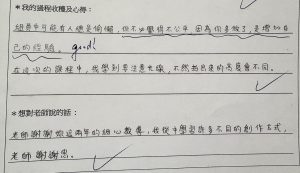 *我的課程收穫及心得:
組員中可能有人總是偷懶,但不必覺得不公平,因為你多做了,是增加自
己的經驗。 good!
在這次的課程中,我學到要注意光線,不然拍出來的亮度會不同。
*想對老師說的話:
老師謝謝您這兩年的細心教導,我從中學習許多不同的創作方式,
老師謝謝您。